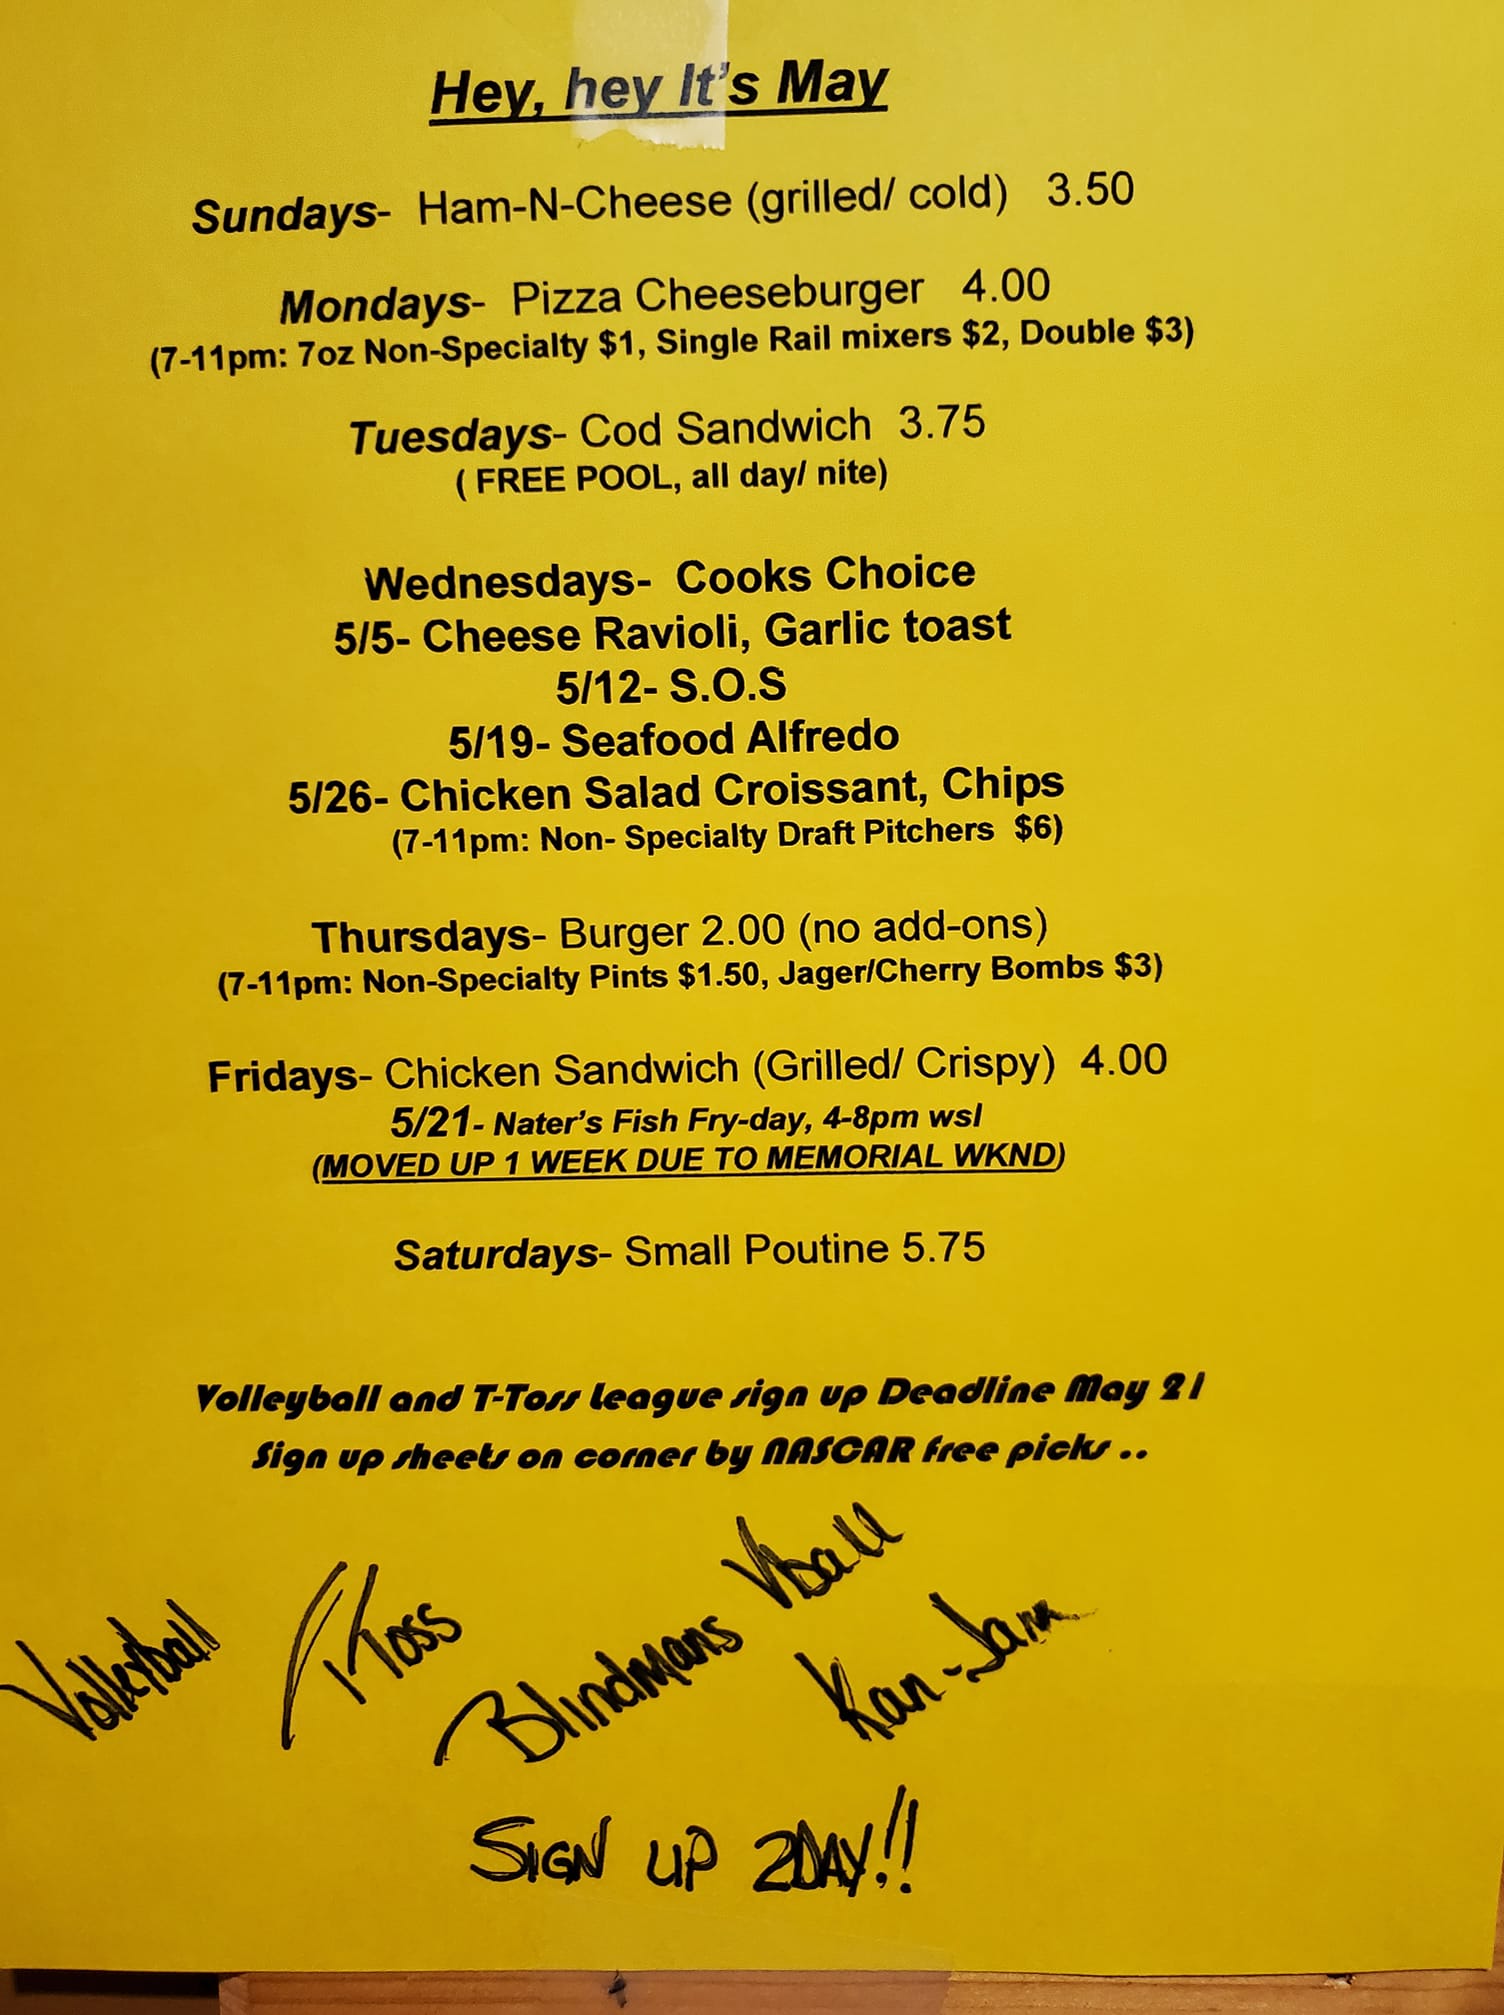 Hey, hey It's May
Sundays- Ham-N-Cheese (grilled/ cold) 3.50
Mondays- Pizza Cheeseburger 4.00
(7-11pm: 7oz Non-Specialty $1, Single Rail mixers $2, Double $3)
Tuesdays- Cod Sandwich 3.75
( FREE POOL, all day/ nite)
Wednesdays- Cooks Choice
5/5- Cheese Ravioli, Garlic toast
5/12- S.O.S
5/19- Seafood Alfredo
5/26- Chicken Salad Croissant, Chips
(7-11pm: Non- Specialty Draft Pitchers $6)
Thursdays- Burger 2.00 (no add-ons)
(7-11pm: Non-Specialty Pints $1.50, Jager/Cherry Bombs $3)
Fridays- Chicken Sandwich (Grilled/ Crispy) 4.00
5/21- Nater's Fish Fry-day, 4-8pm wsl
(MOVED UP 1 WEEK DUE TO MEMORIAL WKND)
Saturdays- Small Poutine 5.75
Volleyball and T-Toss League sign up Deadline May 21
Sign up sheets on corner by NASCAR free picks ..
Volleyball
T Toss
Blindmans Vball
Kan-Jam
SIGN UP 2DAY!!